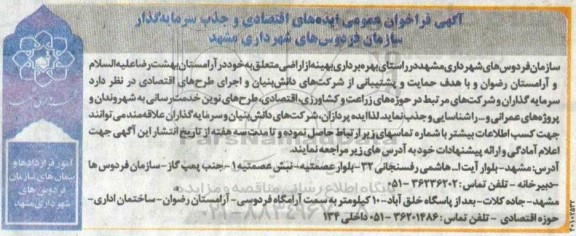 آگهی فراخوان عمومی ایده‌های اقتصادی و جذب سرمایه‌گذار
سازمان فردوس‌های شهرداری مشهد
سازمان فردوس‌های شهرداری مشهد در راستای بهره‌برداری بهینه از اراضی متعلق به خود در آرامستان بهشت رضا علیه السلام
و آرامستان رضوان و با هدف حمایت و پشتیبانی از شرکت‌های دانش‌بنیان و اجرای طرح‌های اقتصادی در نظر دارد
سرمایه گذاران و شرکت‌های مرتبط در حوزه‌های زراعت و کشاورزی، اقتصادی، طرح‌های نوین خدمت رسانی به شهروندان و
پروژه‌های عمرانی و... را شناسایی و جذب نماید. لذا ایده پردازان، شرکت‌های دانش‌بنیان و سرمایه گذاران علاقه‌مند می‌توانند
جهت کسب اطلاعات بیشتر با شماره تماسهای زیر ارتباط حاصل نموده و تا مدت سه هفته از تاریخ انتشار این آگهی جهت
اعلام آمادگی و ارائه پیشنهادات خود به آدرس های زیر مراجعه نمایند.
آدرس: مشهد- بلوار آیت‌ا... هاشمی رفسنجانی ۳۲- بلوار عصمتیه- نبش عصمتیه ۱- جنب پمپ گاز- سازمان فردوس ها
-دبیرخانه - تلفن تماس: ۳۶۲۳۶۲۰۲-۰۵۱
مشهد- جاده کلات- بعد از پاسگاه خلق آباد- ۱۰ کیلومتر به سمت آرامگاه فردوسی- آرامستان رضوان- ساختمان اداری-
حوزه اقتصادی - تلفن تماس: ۳۶۲۰۱۴۸۶-۰۵۱ داخلی ۱۳۴
امور قراردادها و
پیمان های سازمان
فردوس های
شهرداری مشهد
پایگاه اطلاع رسانی مناقصه و مزایده